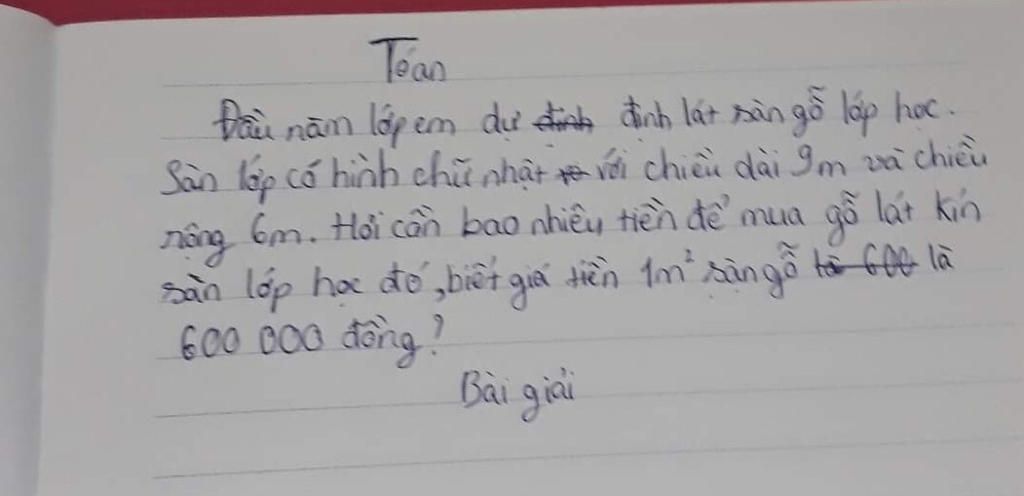 Toán
Đầu năm lớp em dự định định lát sàn gỗ lớp học.
Sàn lớp có hình chữ nhật với chiều dài 9m và chiều
rộng 6m. Hỏi cần bao nhiêu tiền để mua gỗ lát kín
sàn lớp học đó, biết giá tiền 1m² sàn gỗ là 600 là
600 000 đồng?
Bài giải